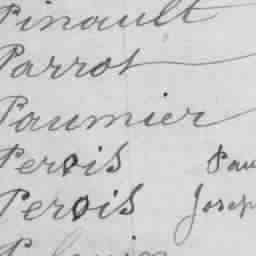 Pinault
Parrot
Paumier
Perois Pau
Perois Josep